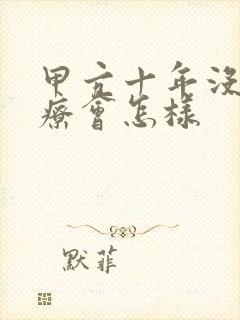 甲亢十年没
療會怎樣
默菲